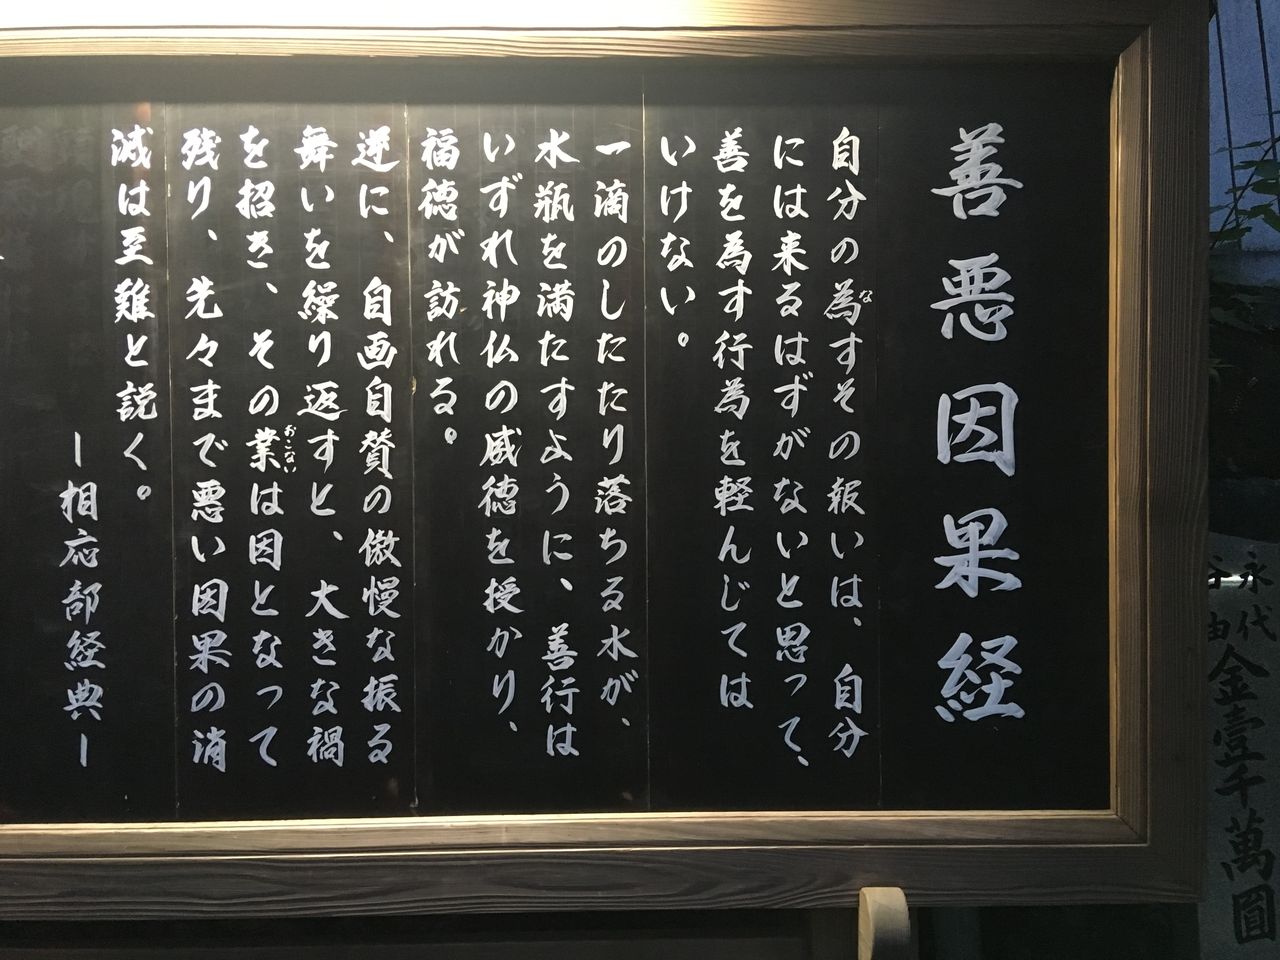 善悪因果経
自分の為すその報いは、自分
には来るはずがないと思って、
善を為す行為を軽んじては
いけない。
一滴のしたたり落ちる水が、
水瓶を満たすように、善行は
いずれ神仏の威徳を授かり、
福徳が訪れる。
逆に、自画自賛の傲慢な振る
舞いを繰り返すと、大きな禍
を招き、その業は因となって
残り、先々まで悪い因果の消
滅は至難と説く。
ー相応部経典ー
な
おこない
永代
金壹千萬圓